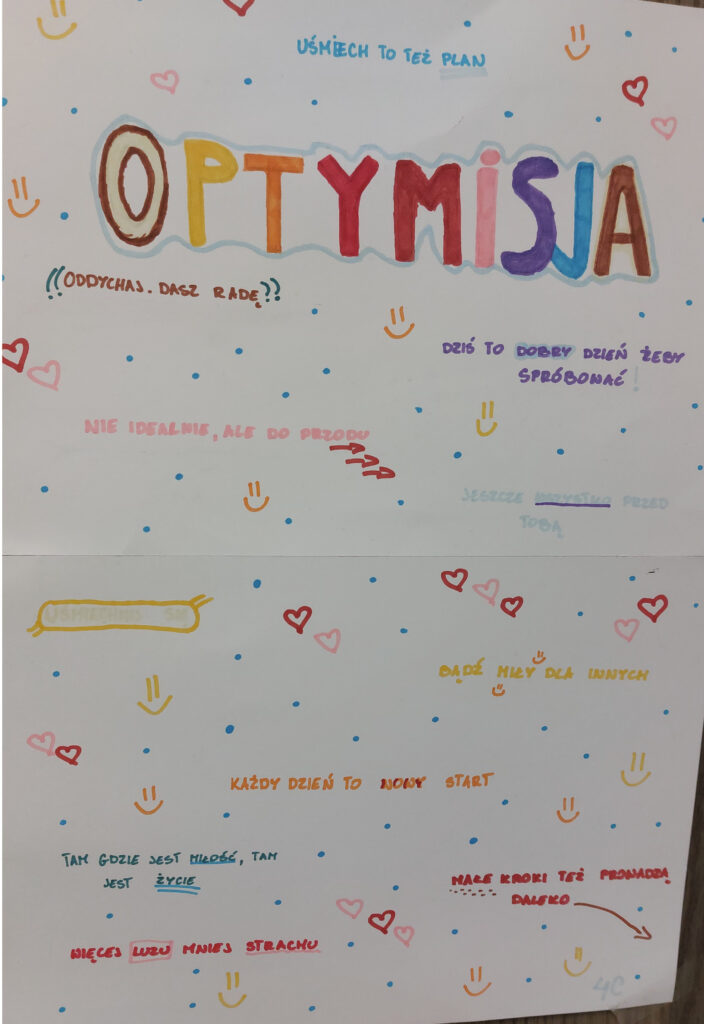 UŚMIECH TO TEŻ PLAN
OPTYMISJA
((ODDYCHAJ. DASZ RADĘ))
DZIŚ TO DOBRY DZIEŃ ŻEBY
SPRÓBOWAĆ!
NIE IDEALNIE, ALE DO PRZODU
JESZCZE WSZYSTKO PRZED
TOBĄ
UŚMIECHNIJ SIĘ
BĄDŹ MIŁY DLA INNYCH
KAŻDY DZIEŃ TO NOWY START
TAM GDZIE JEST MIŁOŚĆ, TAM
JEST ŻYCIE
MAŁE KROKI TEŻ PROWADZĄ
DALEKO
WIĘCEJ LUZU MNIEJ STRACHU
4C